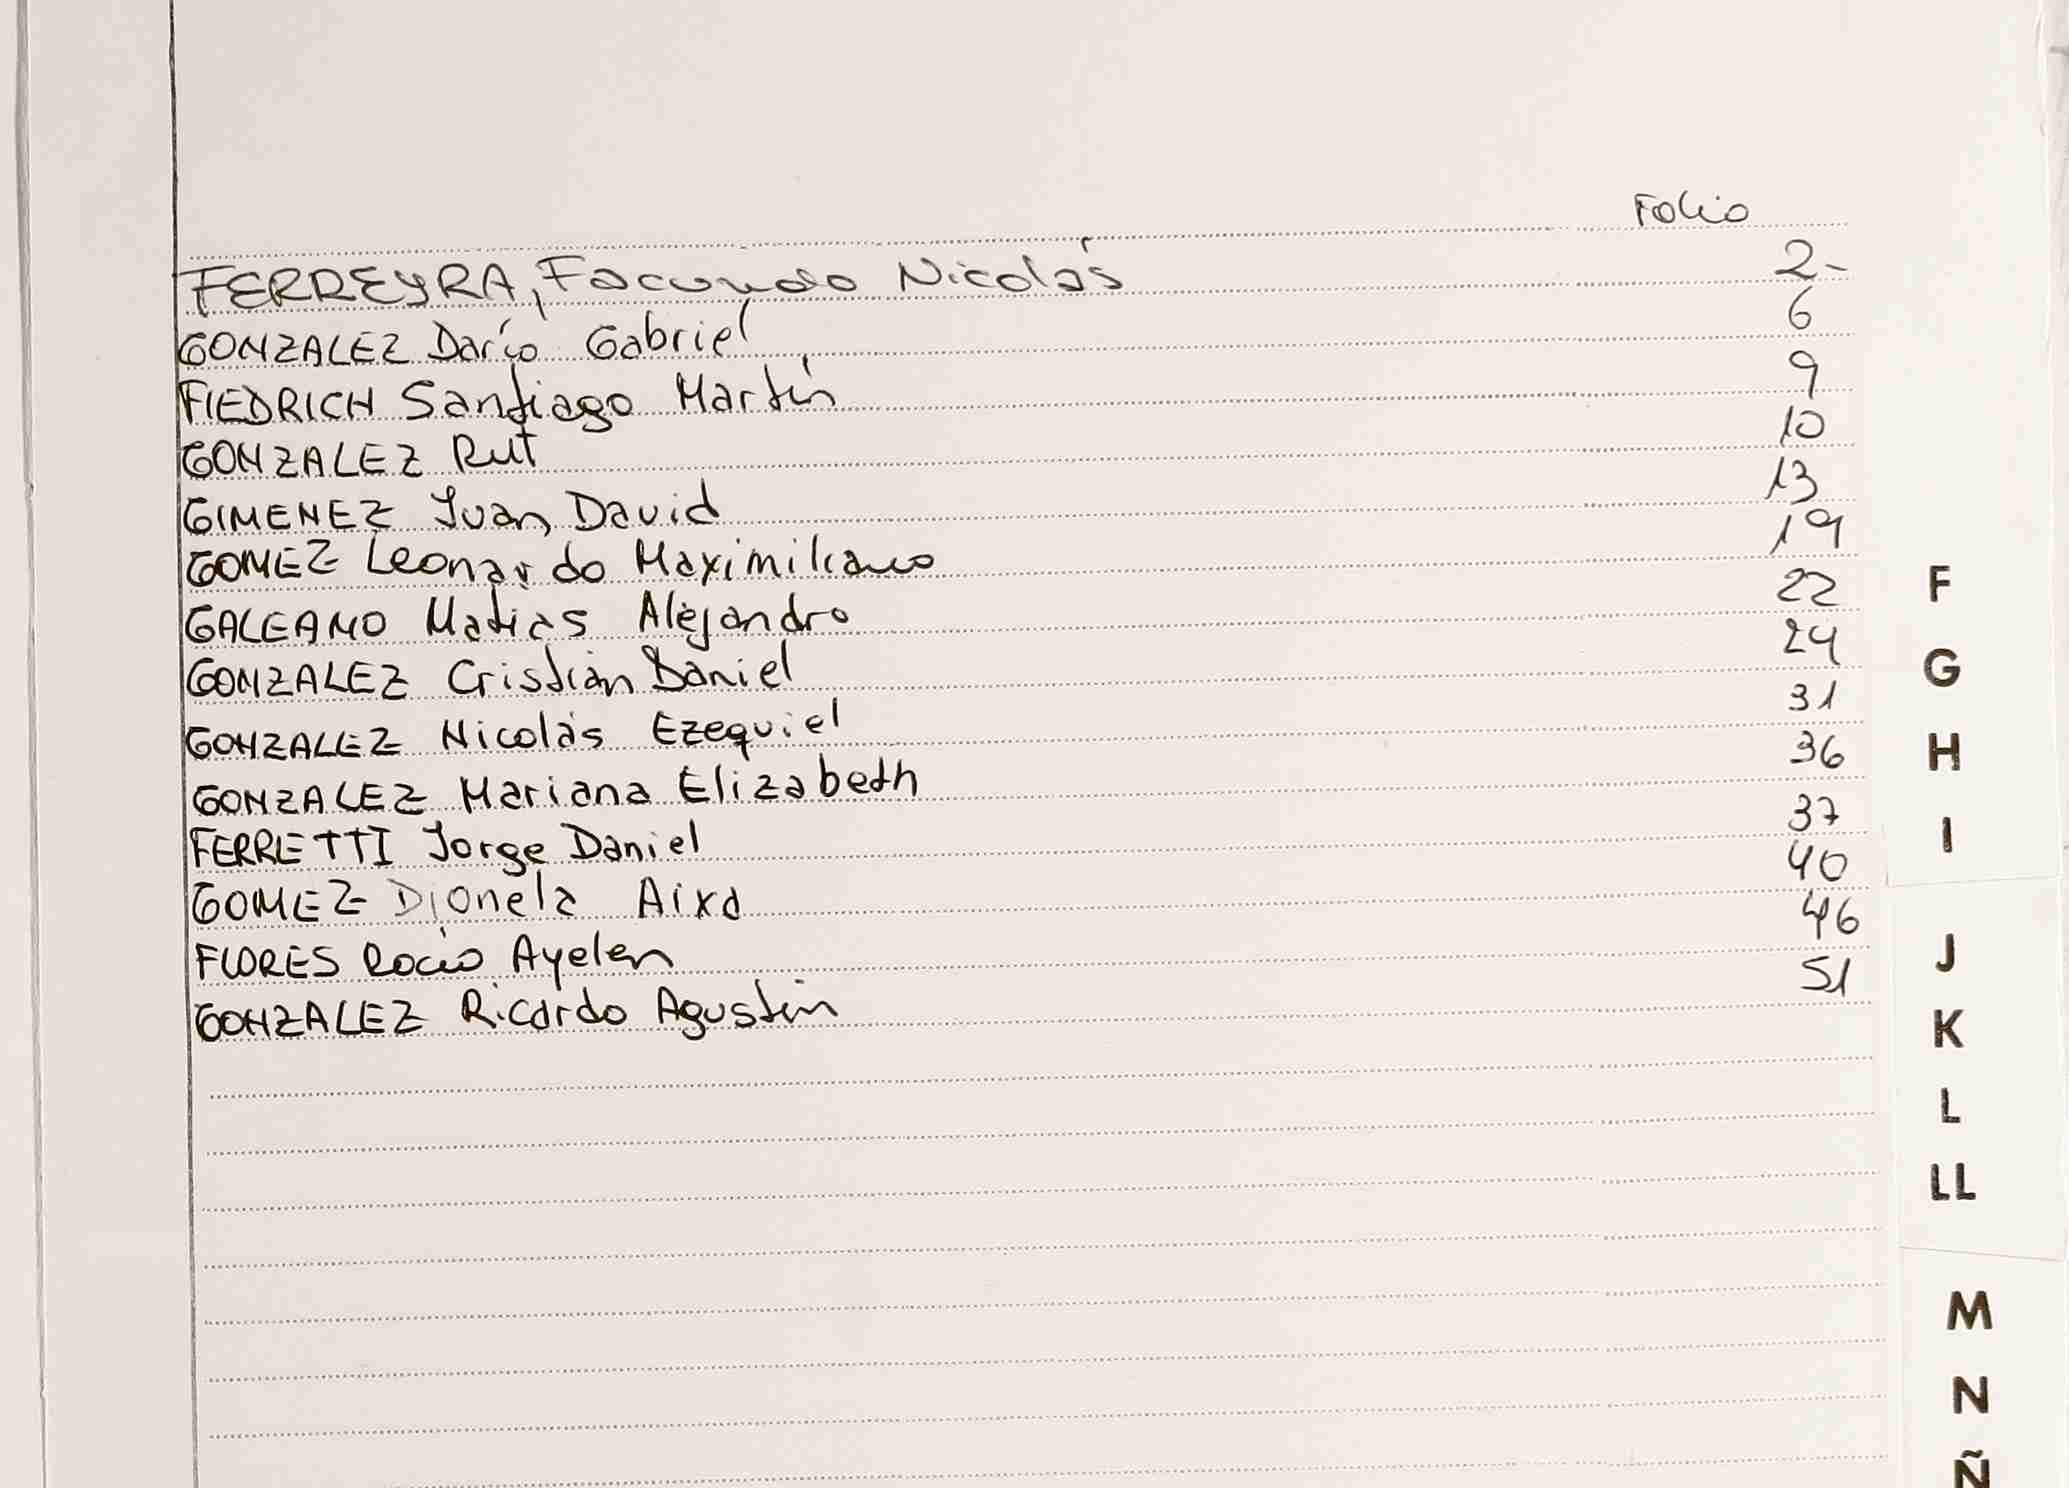 Folio
FERREYRA, Facundo Nicolás 2-
GONZALEZ Darío Gabriel 6
FIEDRICH Santiago Martín 9
GONZALEZ Rut 10
GIMENEZ Juan David 13
GOMEZ Leonardo Maximiliano 19
GALEANO Matías Alejandro 22
GONZALEZ Cristian Daniel 24
GONZALEZ Nicolás Ezequiel 31
GONZALEZ Mariana Elizabeth 36
FERRETTI Jorge Daniel 37
GOMEZ Dionela Aixa 40
FLORES Rocío Ayelen 46
GONZALEZ Ricardo Agustín 51
F
G
H
I
J
K
L
LL
M
N
Ñ